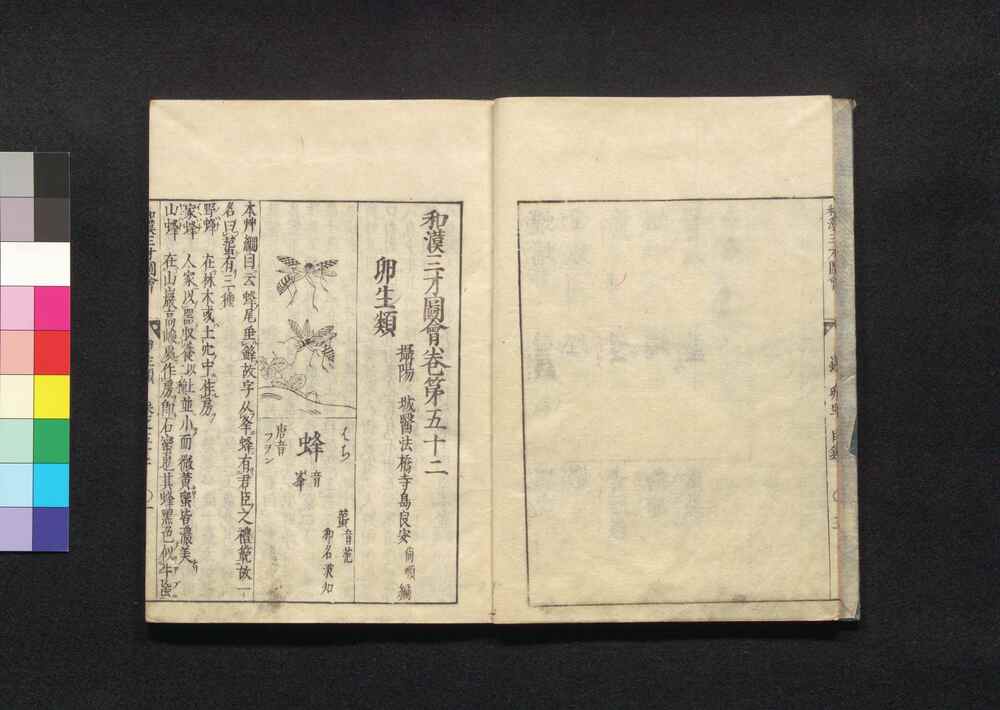 和漢三才圖會卷第五十二
攝陽 城醫法橋寺島良安尚順編
卵生類
はち
蜂
音峯
唐音
フヲン
蠭音範
和名波知
本艸綱目云蜂尾垂鋒故字从夆蜂有君臣之禮範故一
名曰蠭有三種
野蜂 在林木或土穴中作房
家蜂 人家以器收養以並小而微黃蜜皆濃美
山蜂 在山巖高峻處作房即石蜜也其蜂黑色似牛虻
和漢三才圖會